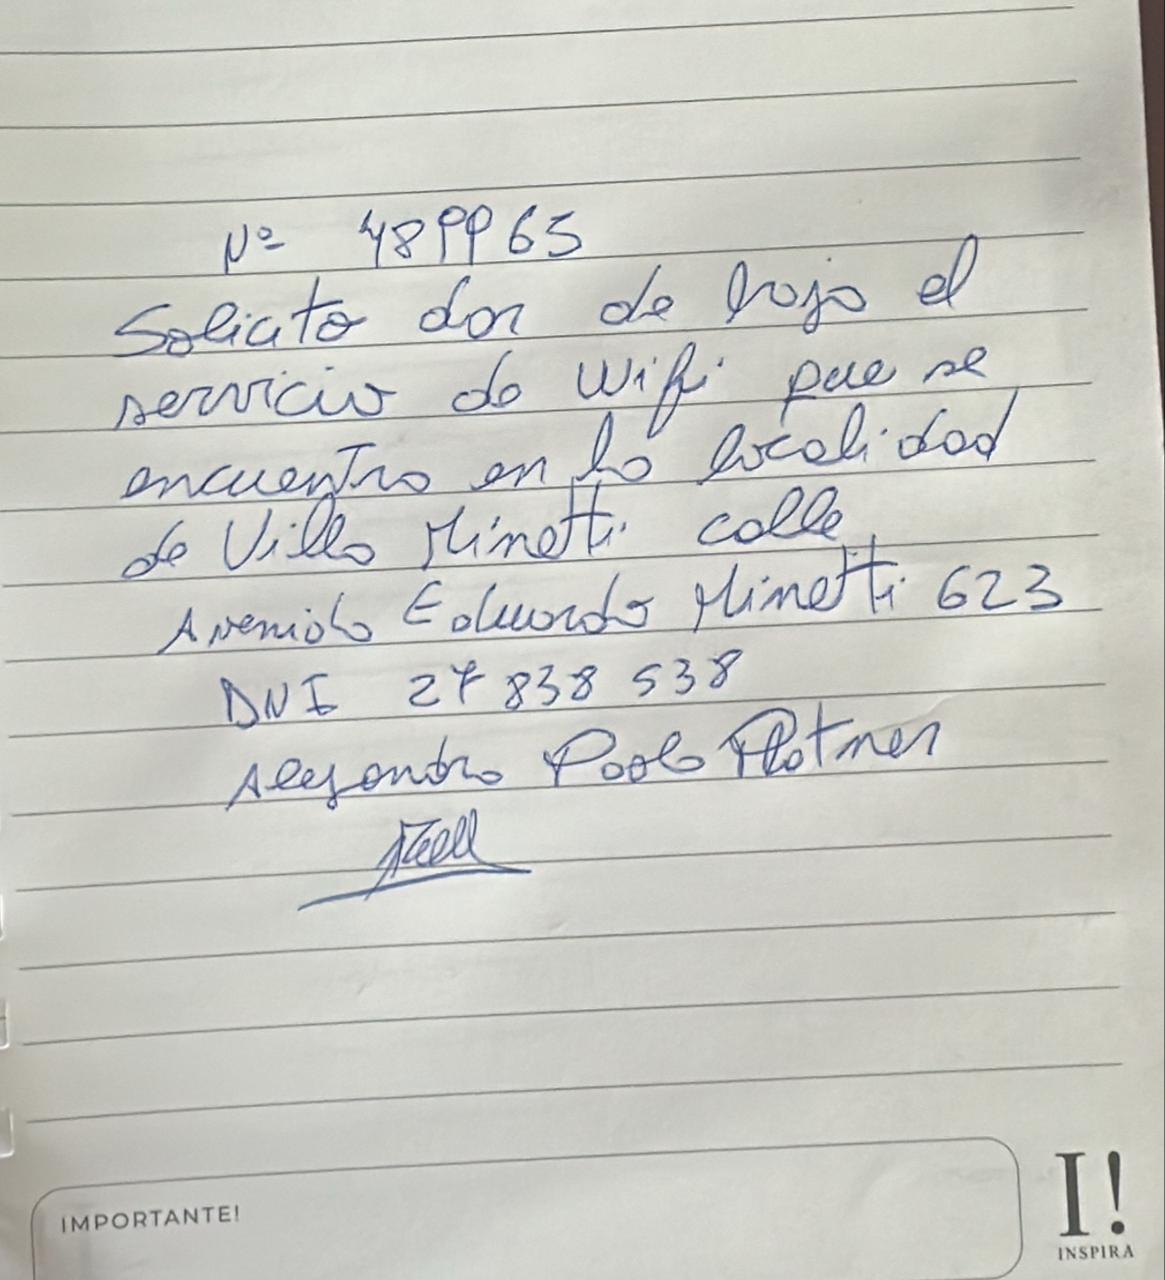 Nº 489965
Solicito dar de baja el
servicio de Wifi que se
encuentra en la localidad
de Villa Minetti calle
Avenida Eduardo Minetti 623
DNI 27 838 538
Alejandro Paolo Platner
IMPORTANTE!
I!
INSPIRA